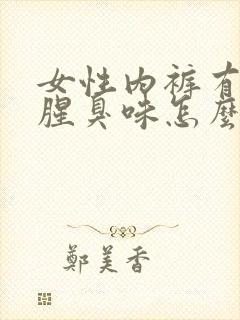 女性内裤有
腥臭味怎麽
鄭美香